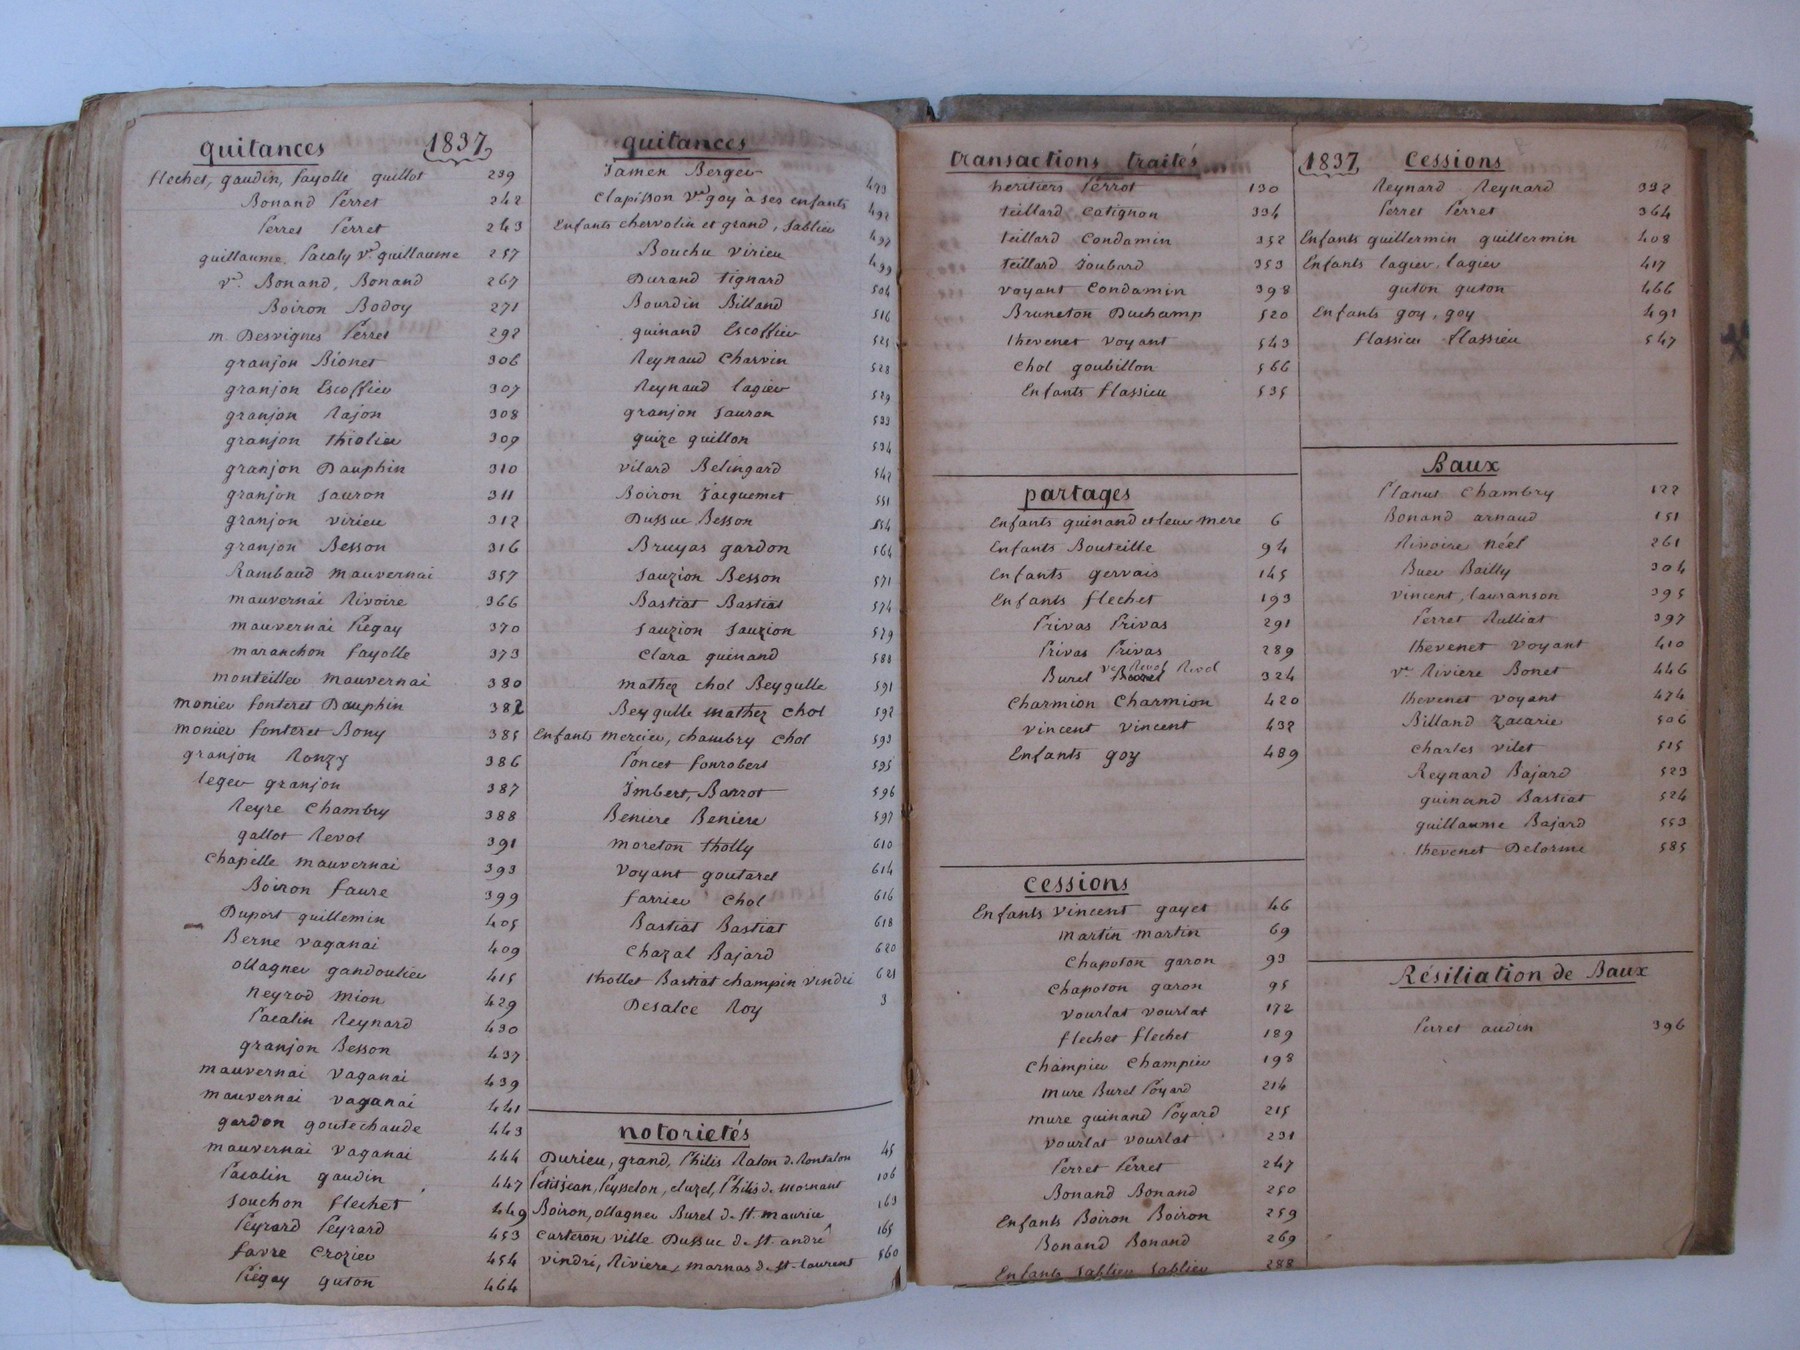 quitances 1837
flechet, gaudin, fayolle guillot 239
Bonand Perret 242
Perret Perret 243
guillaume. Pacaly Ve guillaume 257
ve. Bonand, Bonand 267
Boiron Bodoy 271
m Desvignes Perret 292
granjon Bionet 306
granjon Escoffier 307
granjon Rajon 308
granjon thiolier 309
granjon Dauphin 310
granjon Sauron 311
granjon virieu 312
granjon Besson 316
Rambaud mauvernai 357
mauvernai Rivoire 366
mauvernai Piégay 370
maranchon fayolle 373
monteiller mauvernai 380
monier fonteret Dauphin 382
monier fonteret Bony 385
granjon Ronzy 386
leger granjon 387
Reyre Chambry 388
gallot Revol 391
Chapelle mauvernai 393
Boiron faure 399
Duport guillemin 405
Berne vaganai 409
ollagner gandoulier 415
neyrod mion 429
Pacalin Reynard 430
granjon Besson 437
mauvernai vaganai 439
mauvernai vaganai 441
gardon goutechaude 443
mauvernai vaganai 444
Pacalin gaudin 447
Souchon flechet 449
Peyrard Peyrard 453
favre Crozier 454
Piégay guton 464
quitances
Jamen Berger 473
Clapisson Ve goy à ses enfants 492
Enfants chervolin et grand, Sablier 497
Bouchu virieu 499
Durand tignard 504
Bourdin Billand 516
guinand Escoffier 525
Reynaud Charvin 528
Reynaud lagier 529
granjon Sauron 533
guize guillon 534
vilard Belingard 542
Boiron Jacquemet 551
Dussuc Besson 554
Bruyas gardon 564
Sauzion Besson 571
Bastiat Bastiat 574
Sauzion Sauzion 579
Clara guinand 588
mathez chol Beygulle 591
Beygulle mathez chol 592
Enfants mercier, chambry chol 593
Poncet fonrobert 595
Imbert, Barrot 596
Beniere Beniere 597
moreton tholly 610
voyant goutarel 614
farrier chol 616
Bastiat Bastiat 618
Chazal Bajard 620
thollet Bastiat champin vindri 621
Desalce Roy 3
notorietés
Durieu, grand, Philis Raton de Rontalon 45
Petitjean, Peysselon, cluzel, Philis de mornant 106
Boiron, ollagner Burel de St. maurice 163
Carteron ville Dussuc de St. andré 165
vindri, Riviere, marnas de St. laurent 560
transactions traités
heritiers Perrot 130
teillard Catignon 334
teillard Condamin 352
teillard Joubard 353
voyant Condamin 398
Bruneton Duchamp 520
thevenet voyant 543
Chol goubillon 566
Enfants flassieu 535
partages
Enfants guinand et leur mere 6
Enfants Bouteille 94
Enfants gervais 145
Enfants flechet 193
Privas Privas 291
Privas Privas 289
Burel ve Revol Revol 324
Charmion Charmion 420
vincent vincent 432
Enfants goy 489
cessions
Enfants vincent gayet 46
martin martin 69
Chapoton garon 93
Chapoton garon 95
vourlat vourlat 172
flechet flechet 189
Champier Champier 198
mure Burel Poyard 214
mure guinand Poyard 215
vourlat vourlat 231
Perret Perret 247
Bonand Bonand 250
Enfants Boiron Boiron 259
Bonand Bonand 269
Enfants Sablier Sablier 288
1837 Cessions
Reynard Reynard 332
Perret Perret 364
Enfants guillermin guillermin 408
Enfants lagier, lagier 417
guton guton 466
Enfants goy, goy 491
flassieu flassieu 547
Baux
Planus Chambry 122
Bonand arnaud 151
Rivoire néel 261
Buer Bailly 304
vincent, lauranson 395
Perret Rulliat 397
thevenet voyant 410
ve Riviere Bonet 446
thevenet voyant 474
Billand Zacarie 506
Charles vilet 515
Reynard Bajard 523
guinand Bastiat 524
guillaume Bajard 553
thevenet Delorme 585
Résiliation de Baux
Perret audin 396